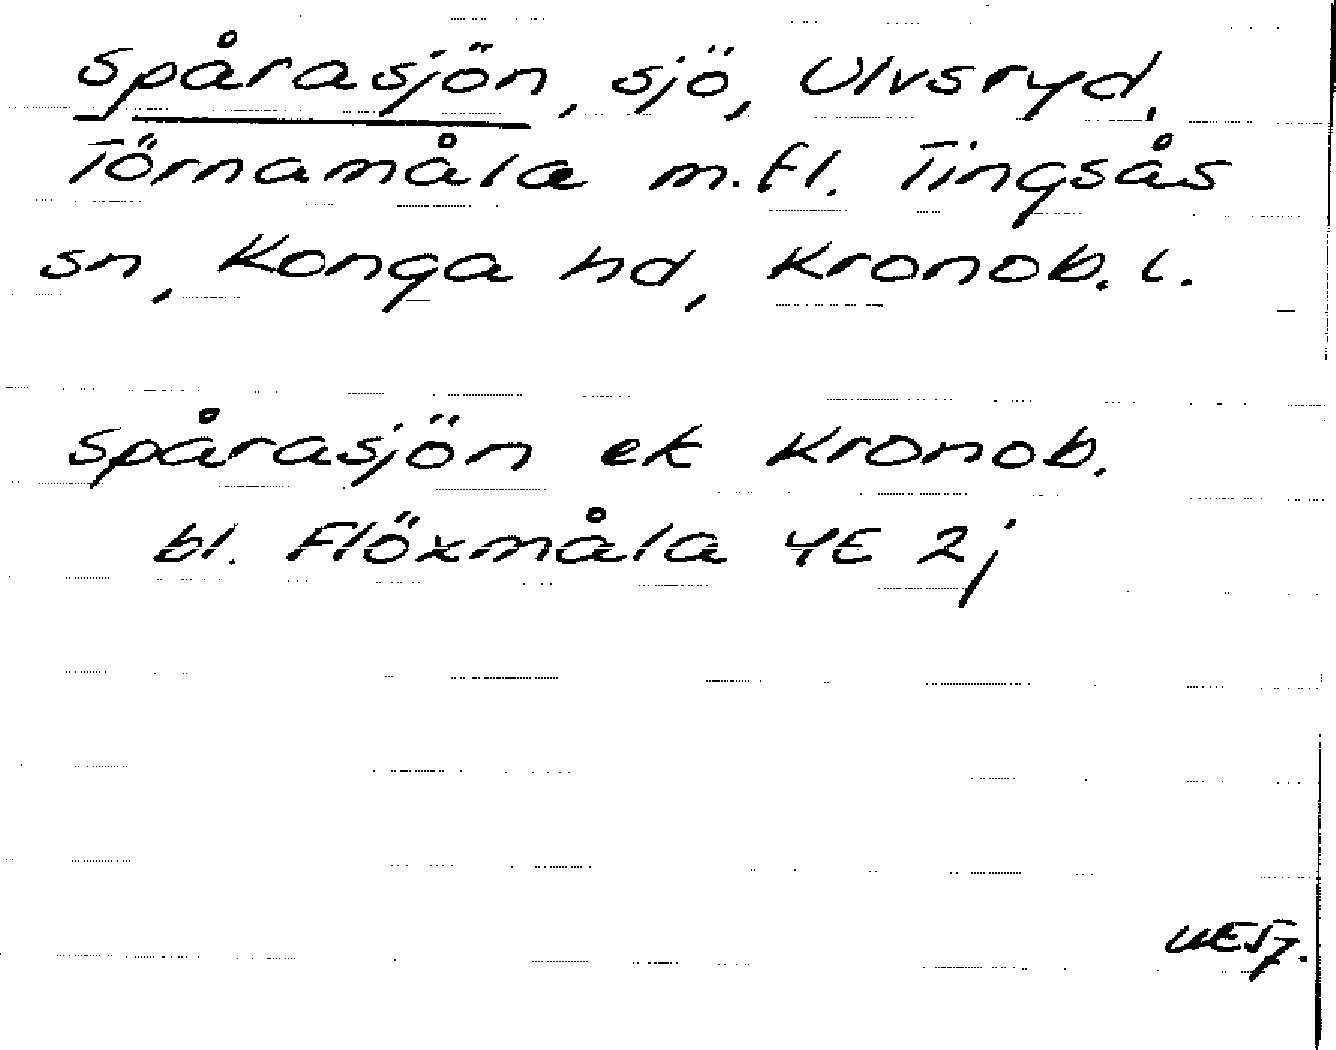 Spårasjön, sjö, Ulvsryd,
Törnamåla m.fl. Tingsås
sn, Konga hd, Kronob. l.
Spårasjön ek Kronob.
bl. Flöxmåla 4E 2j